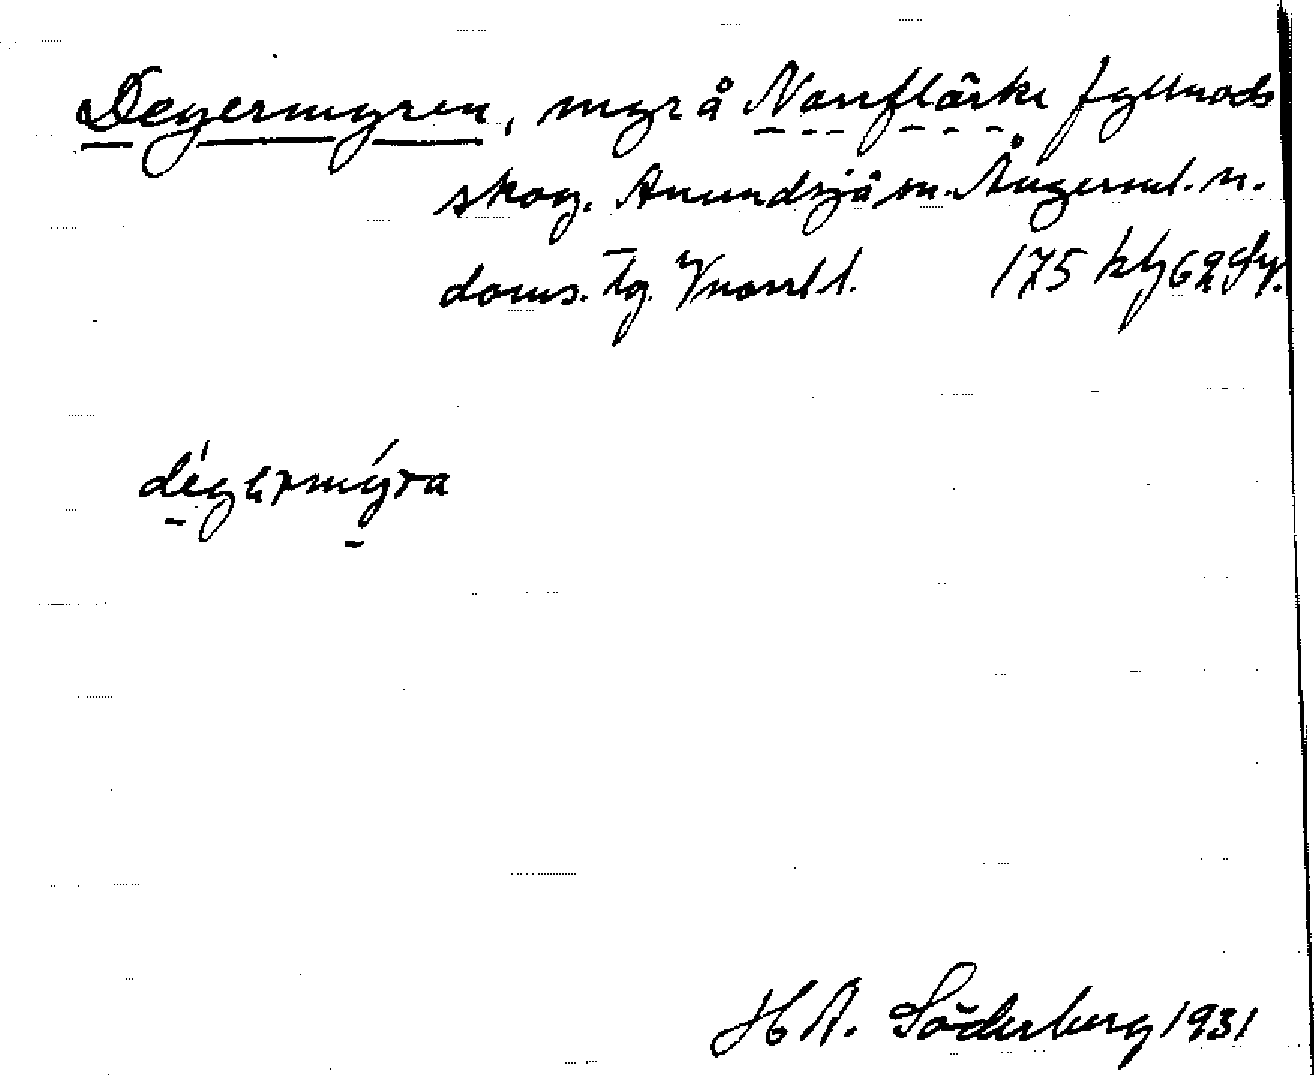 Degermyren, myr å Norrflärke fyllnads
skog. Anundsjö sn. Ångerml. n.
doms. tg. Vnorrl l. 175 kbg 62 Sy.
dégərmýra
H A. Söderberg 1931